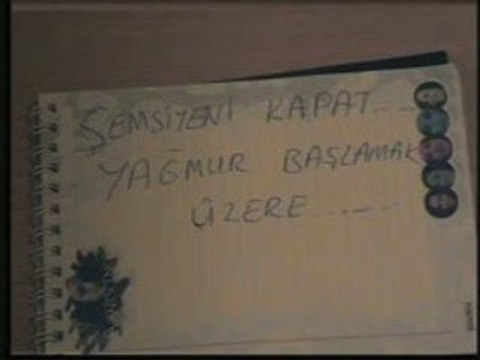 ŞEMSİYENİ KAPAT....
YAĞMUR BAŞLAMAK
ÜZERE......